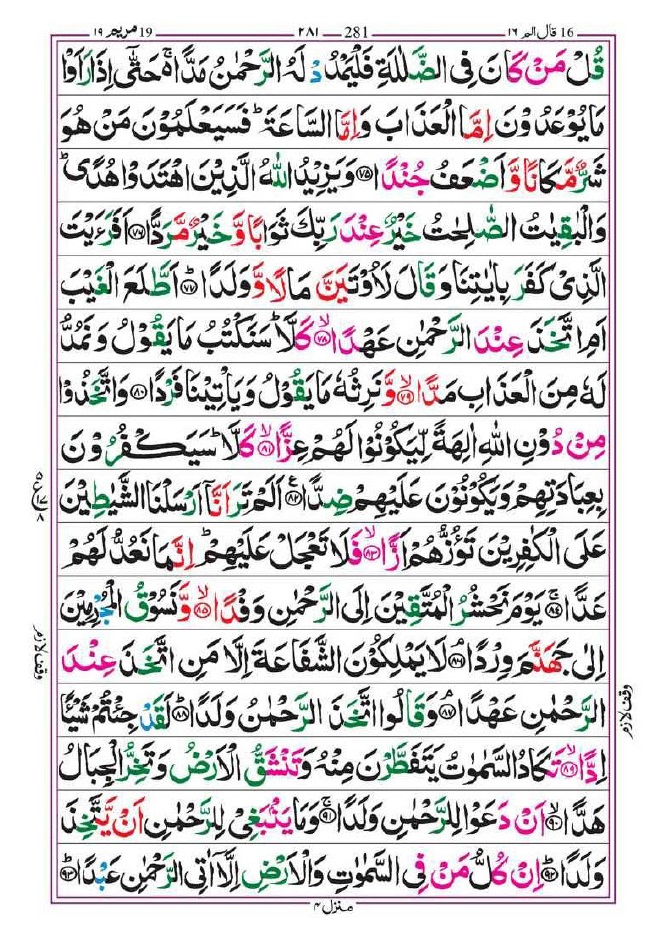 16 قال الم ١٦
281 ٢٨١
19 مريم ١٩
قُلْ مَنْ كَانَ فِى الضَّلٰلَةِ فَلْيَمْدُدْ لَهُ الرَّحْمٰنُ مَدًّا ۚ۬ حَتّٰٓى اِذَا رَاَوْا
مَا يُوْعَدُوْنَ اِمَّا الْعَذَابَ وَاِمَّا السَّاعَةَ ؕ فَسَيَعْلَمُوْنَ مَنْ هُوَ
شَرٌّ مَّكَانًا وَّاَضْعَفُ جُنْدًا ﴿۷۵﴾ وَيَزِيْدُ اللّٰهُ الَّذِيْنَ اهْتَدَوْا هُدًى ؕ
وَالْبٰقِيٰتُ الصّٰلِحٰتُ خَيْرٌ عِنْدَ رَبِّكَ ثَوَابًا وَّخَيْرٌ مَّرَدًّا ﴿۷۶﴾ اَفَرَءَيْتَ
الَّذِىْ كَفَرَ بِاٰيٰتِنَا وَقَالَ لَاُوْتَيَنَّ مَالًا وَّوَلَدًا ﴿۷۷﴾ؕ اَطَّلَعَ الْغَيْبَ
اَمِ اتَّخَذَ عِنْدَ الرَّحْمٰنِ عَهْدًا ﴿۷۸﴾ۙ كَلَّا ؕ سَنَكْتُبُ مَا يَقُوْلُ وَنَمُدُّ
لَهٗ مِنَ الْعَذَابِ مَدًّا ﴿۷۹﴾ۙ وَّنَرِثُهٗ مَا يَقُوْلُ وَيَاْتِيْنَا فَرْدًا ﴿۸۰﴾ وَاتَّخَذُوْا
مِنْ دُوْنِ اللّٰهِ اٰلِهَةً لِّيَكُوْنُوْا لَهُمْ عِزًّا ﴿۸۱﴾ۙ كَلَّا ؕ سَيَكْفُرُوْنَ
بِعِبَادَتِهِمْ وَيَكُوْنُوْنَ عَلَيْهِمْ ضِدًّا ﴿۸۲﴾ۧ اَلَمْ تَرَ اَنَّاۤ اَرْسَلْنَا الشَّيٰطِيْنَ
عَلَى الْكٰفِرِيْنَ تَؤُزُّهُمْ اَزًّا ﴿۸۳﴾ۙ فَلَا تَعْجَلْ عَلَيْهِمْ ؕ اِنَّمَا نَعُدُّ لَهُمْ
عَدًّا ﴿۸۴﴾ۚ يَوْمَ نَحْشُرُ الْمُتَّقِيْنَ اِلَى الرَّحْمٰنِ وَفْدًا ﴿۸۵﴾ۙ وَّنَسُوْقُ الْمُجْرِمِيْنَ
اِلٰى جَهَنَّمَ وِرْدًا ﴿۸۶﴾ۘ لَا يَمْلِكُوْنَ الشَّفَاعَةَ اِلَّا مَنِ اتَّخَذَ عِنْدَ
الرَّحْمٰنِ عَهْدًا ﴿۸۷﴾ۘ وَقَالُوا اتَّخَذَ الرَّحْمٰنُ وَلَدًا ﴿۸۸﴾ؕ لَقَدْ جِئْتُمْ شَيْـًٔا
اِدًّا ﴿۸۹﴾ۙ تَكَادُ السَّمٰوٰتُ يَتَفَطَّرْنَ مِنْهُ وَتَنْشَقُّ الْاَرْضُ وَتَخِرُّ الْجِبَالُ
هَدًّا ﴿۹۰﴾ۙ اَنْ دَعَوْا لِلرَّحْمٰنِ وَلَدًا ﴿۹۱﴾ۚ وَمَا يَنْۢبَغِىْ لِلرَّحْمٰنِ اَنْ يَّتَّخِذَ
وَلَدًا ﴿۹۲﴾ؕ اِنْ كُلُّ مَنْ فِى السَّمٰوٰتِ وَالْاَرْضِ اِلَّاۤ اٰتِى الرَّحْمٰنِ عَبْدًا ﴿۹۳﴾ؕ
وقف لازم
وقف لازم
منزل ۴